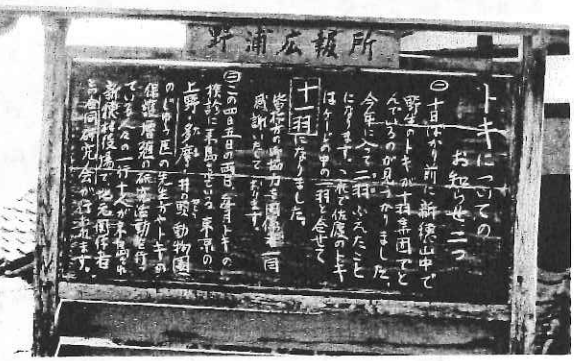 野浦広報所
トキについての
お知らせ二つ
㊀十日ばかり前に新穂山中で
野生のトキが十羽集団でと
んでいるのが見つかりました。
今年に入って二羽ふえたこと
になります。これで佐渡のトキ
はケージの中の一羽と合せて
十一羽になりました。
皆様方の御協力を関係者一同
感謝いたしております。
㊁この四、五日の両日、毎月トキの
検診に来島している東京の
上野・多摩・井の頭動物園
のじゅう医の先生方がトキの
保護増殖の研究活動を行っ
ている人々の一行十人が来島され
新穂村役場で地元関係者
と合同研究会が行われます。